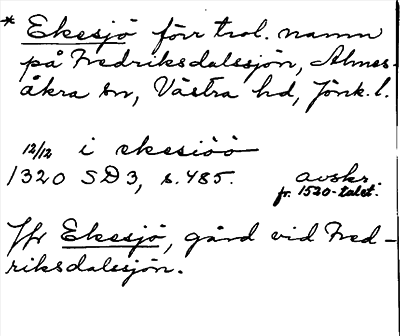 * Ekesjö förr trol. namn
på Fredriksdalasjön, Almes-
åkra sn, Västra hd, Jönk. l.
12/12 i ekesiöö
1320 SD3, s. 485. avskr.
fr. 1520-talet.
Jfr Ekesjö, gård vid Fred-
riksdalasjön.